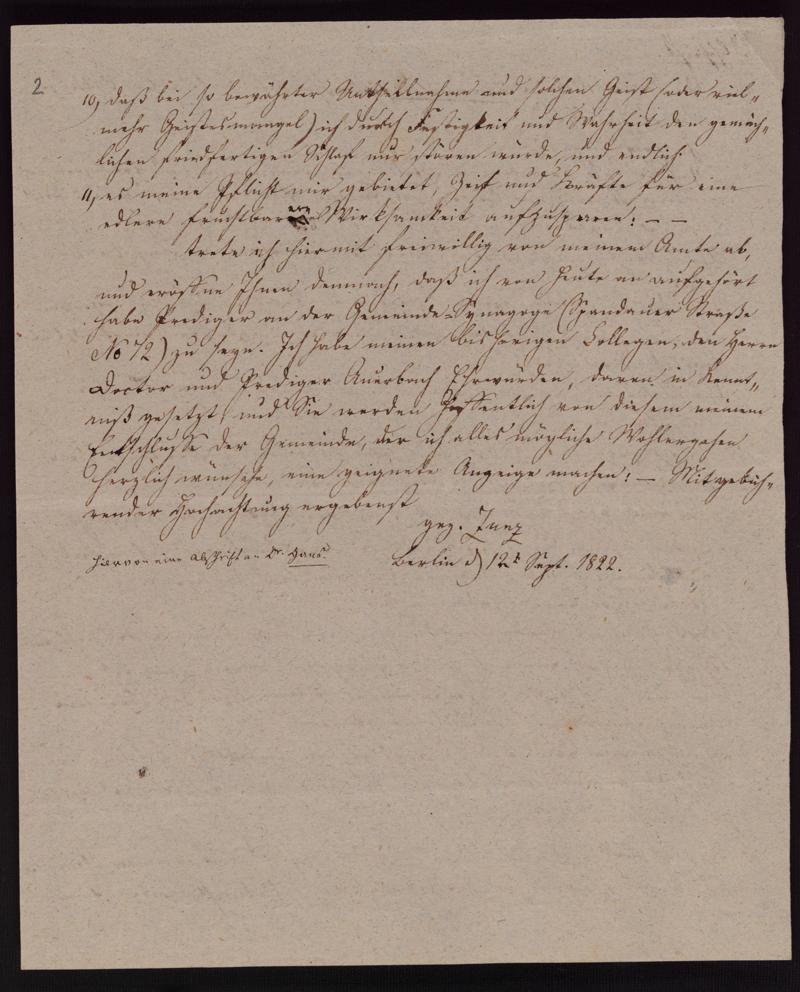 2
10, daß bei so bewährter Untheilnahme und solchen Geist (oder viel-
mehr Geistesmangel) ich durch Festigkeit und Wahrheit den gemäch-
lichen friedfertigen Schlaf nur stören würde, und endlich
11, es meine Pflicht mir gebietet, Zeit und Kräfte für eine
edlere fruchtbarere Wirksamkeit aufzusparen: — —
trete ich hiermit freiwillig von meinem Amte ab,
und eröffne Ihnen demnach, daß ich von heute an aufgehört
habe Prediger an der Gemeinde-Synagoge (Spandauer Straße
No 72) zu seyn. Ich habe meinen bisherigen Collegen, den Herrn
Doctor und Prediger Auerbach Ehrwürden, davon in Kennt-
niß gesetzt, und Sie werden hoffentlich von diesem meinem
Entschlusse der Gemeinde, der ich alles mögliche Wohlergehen
herzlich wünsche, eine geignete Anzeige machen: — Mit gebüh-
render Hochachtung ergebenst
gez. Zunz
hiervon eine Abschrift an Dr. Gans.
Berlin d) 12t Sept. 1822.